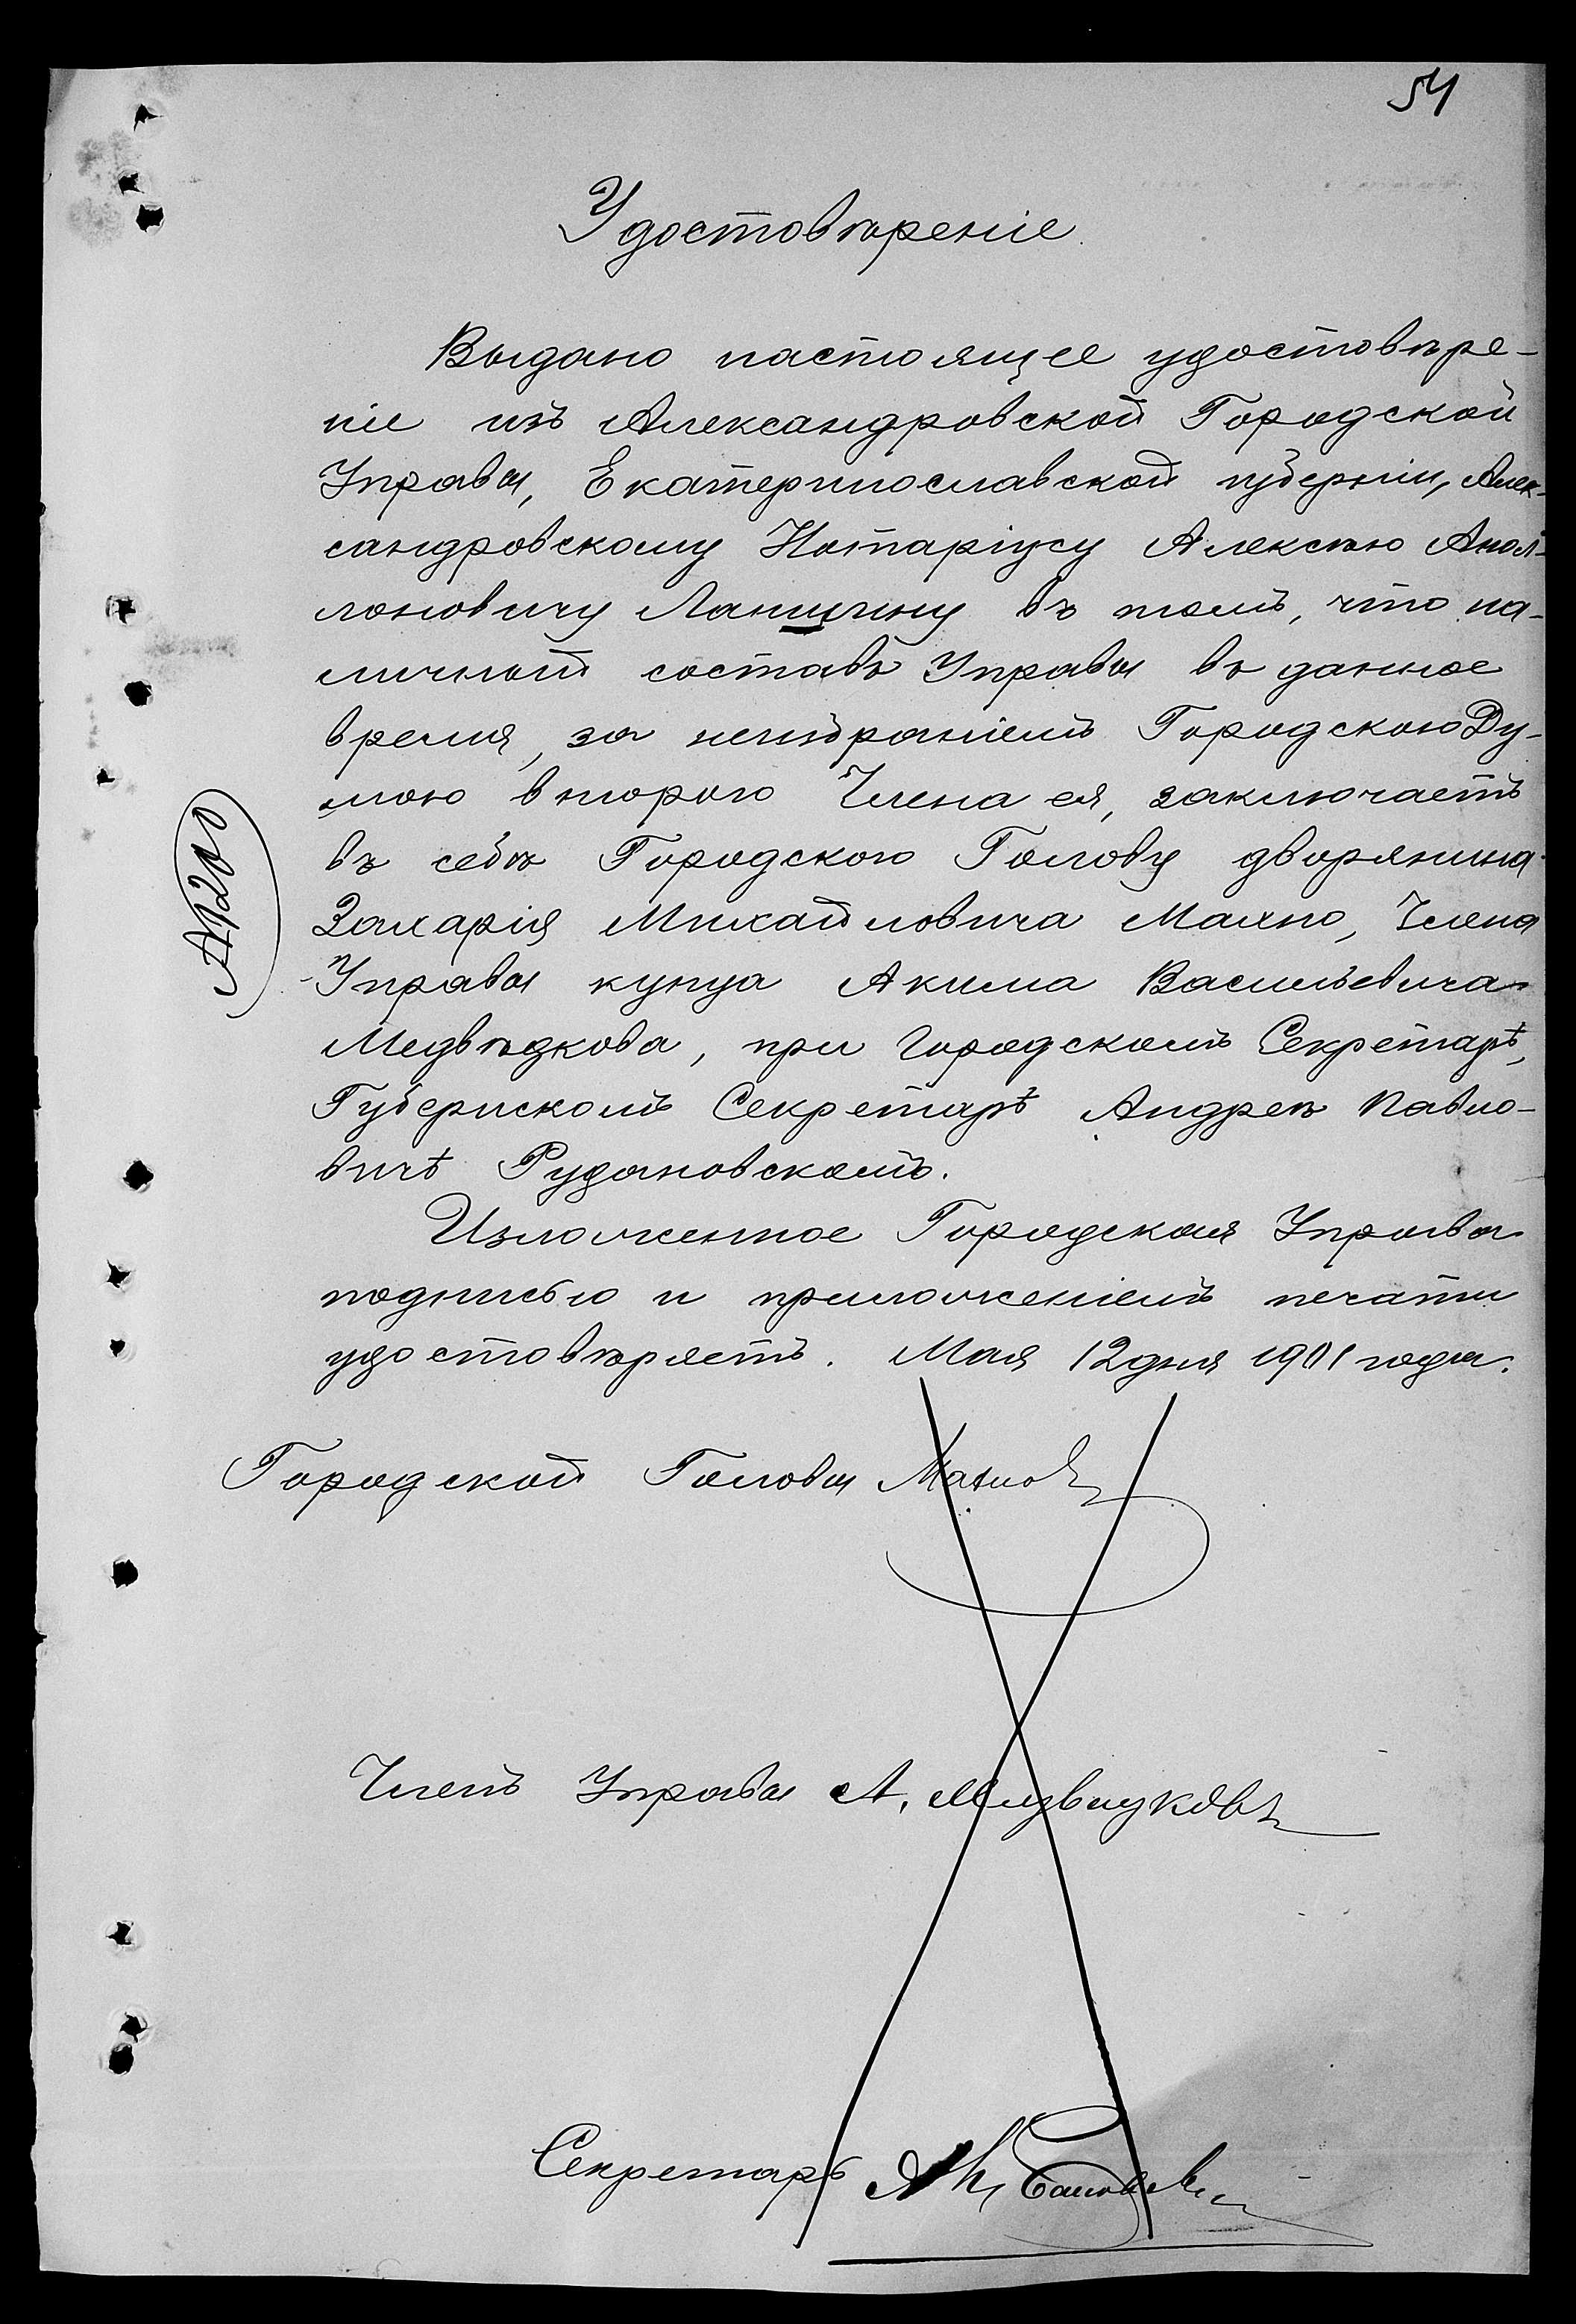 54
Удостовѣреніе.
Выдано настоящее удостовѣре-
ніе изъ Александровской Городской
Управы, Екатеринославской губерніи, Алек-
сандровскому Нотаріусу Алексѣю Апол-
лоновичу Ланшину въ томъ, что на-
личный составъ Управы въ данное
время, за неизбраніемъ Городскою Ду-
мою второго Члена ея, заключаетъ
въ себѣ Городского Голову дворянина
Захарія Михайловича Махно, Члена
Управы купца Акима Васильевича
Медвѣдкова, при Городскомъ Секретарѣ,
Губернскомъ Секретарѣ Андреѣ Павло-
вичѣ Рудановскомъ.
Изложенное Городская Управа
подписью и приложеніемъ печати
удостовѣряетъ. Мая 12 дня 1901 года.
Городской Голова Махно
Членъ Управы А. Медвѣдковъ
Секретарь